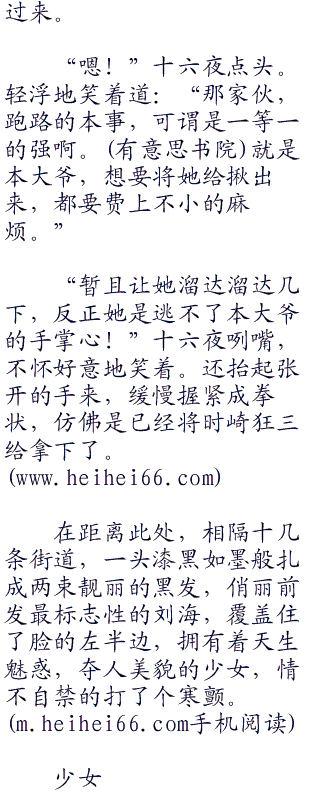 过来。
“嗯！”十六夜点头。
轻浮地笑着道：“那家伙，
跑路的本事，可谓是一等一
的强啊。(有意思书院)就是
本大爷，想要将她给揪出
来，都要费上不小的麻
烦。”
“暂且让她溜达溜达几
下，反正她是逃不了本大爷
的手掌心！”十六夜咧嘴，
不怀好意地笑着。还抬起张
开的手来，缓慢握紧成拳
状，仿佛是已经将时崎狂三
给拿下了。
(www.heihei66.com)
在距离此处，相隔十几
条街道，一头漆黑如墨般扎
成两束靓丽的黑发，俏丽前
发最标志性的刘海，覆盖住
了脸的左半边，拥有着天生
魅惑，夺人美貌的少女，情
不自禁的打了个寒颤。
(m.heihei66.com手机阅读)
少女